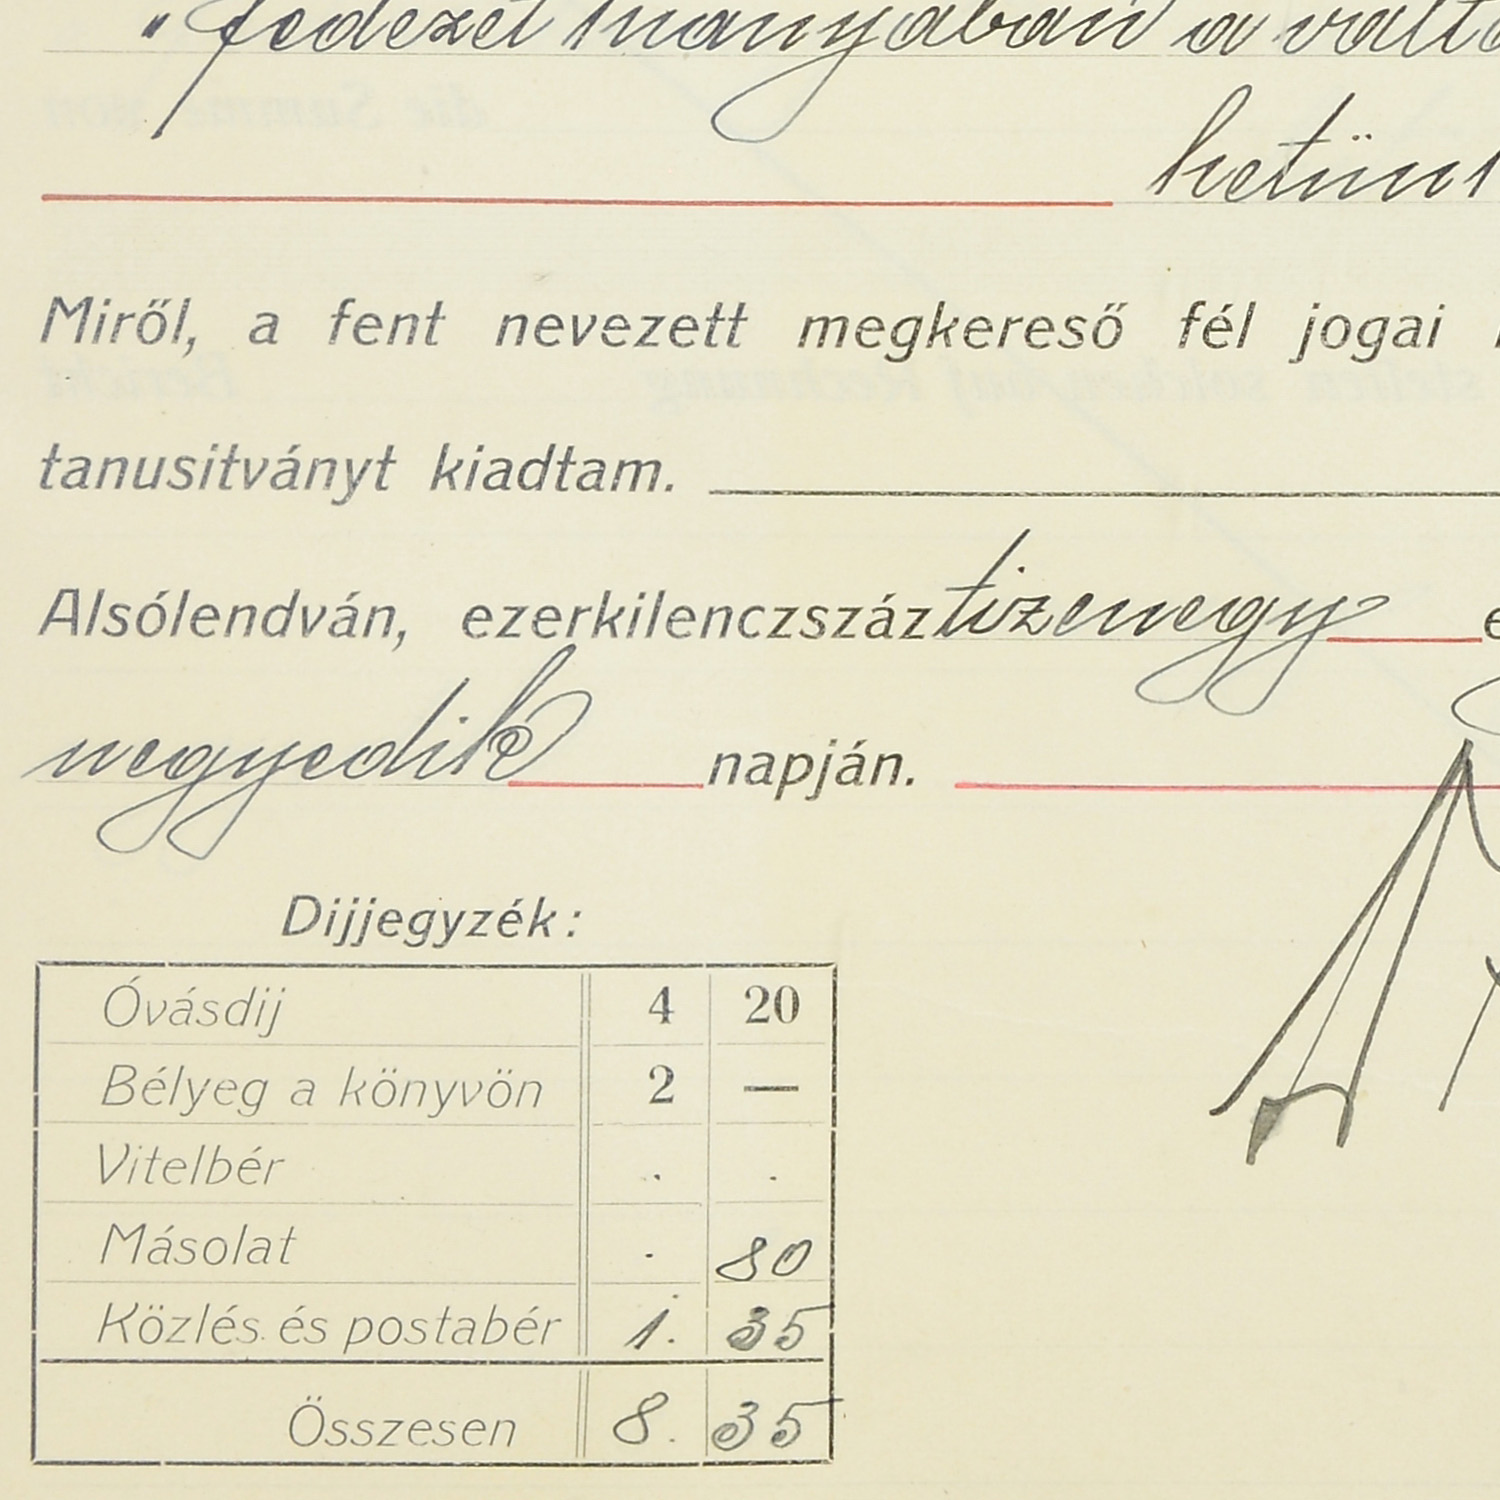 " fedezet hiányában a váltó
hetünk
Miről, a fent nevezett megkereső fél jogai
tanusitványt kiadtam.
Alsólendván, ezerkilenczszáz tizenegy
negyedik napján.
Dijjegyzék:
Óvásdij 4 20
Bélyeg a könyvön 2 —
Vitelbér . .
Másolat . 80
Közlés és postabér 1. 35
Összesen 8. 35